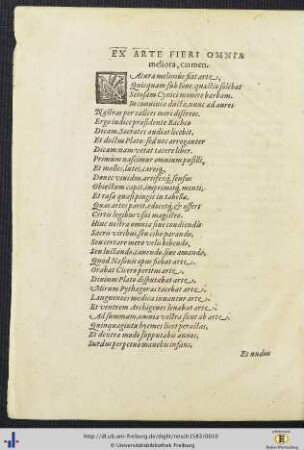 EX ARTE FIERI OMNIA
meliora, carmen.
NAtura meliusúe fiat arte,
Quisquam sub Ioue, quæstio solebat
Setosam Cynici mouere barbam.
Ne conuiuia docta, nunc ad aures
Nostras per calices meri diserros.
Ergo iudice præsidente Baccho
Dicam, Socrates audiat licebit,
Et doctus Plato: sed nec arroganter
Dicam: nam vetat tacere liber.
Primùm nascimur omnium pusilli,
Et molles, lutei,
Donec viuidus, artifexq́; sensus
Obiectum capit, imprimitq́; menti,
Et rasa quasi pingit in tabella,
Quas artes parit, adocetq́; & offert
Certis legibus vsus magistro.
Hinc nostra omnia siue condiendis
Sacris viribus, seu cibo parando,
Seu certare mero velis bibendo,
Seu luctando, canendo siue amando,
Quod Nasonis opus fiebat arte.
Orabat Cicero peritus arte,
Diuinus Plato disputabat arte,
Mirum Pythagoras tacebat arte,
Languentes medica iuuantur arte,
Et ventrem Archigenes leuabat arte.
Ad summam, omnia vestra sunt ab arte,
Quinquaginta hyemes licet peractas,
Et dextra modo supputabis annos,
Surdus perpetuò manebis infans,
Et nudus
http://dl.ub.uni-freiburg.de/diglit/reisch1583/0010
© Universitätsbibliothek Freiburg